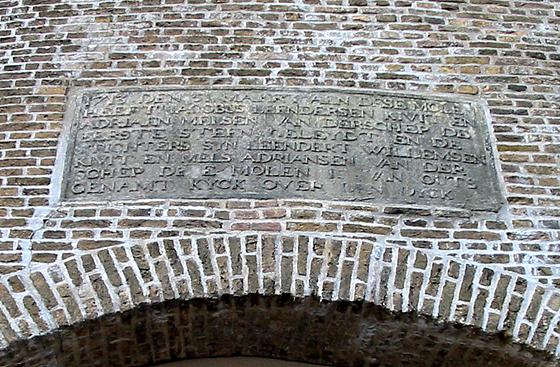 1713 DEN AEN DESE MOLE
HEEFT JACOBUS LEENDERTSEN KIVIT EN
ADRIA EN MENSEN VAN DER SCHEP DE
EERSTE STEEN GELEYD EN DE
STICHTERS SYN LEENDERT WILLEMSEN
KIVIT EN MELS ADRIANSEN VAN DER
SCHEP DE E MOLEN IS VAN ONS
GENAMT KYCK OVER DEN DYCK